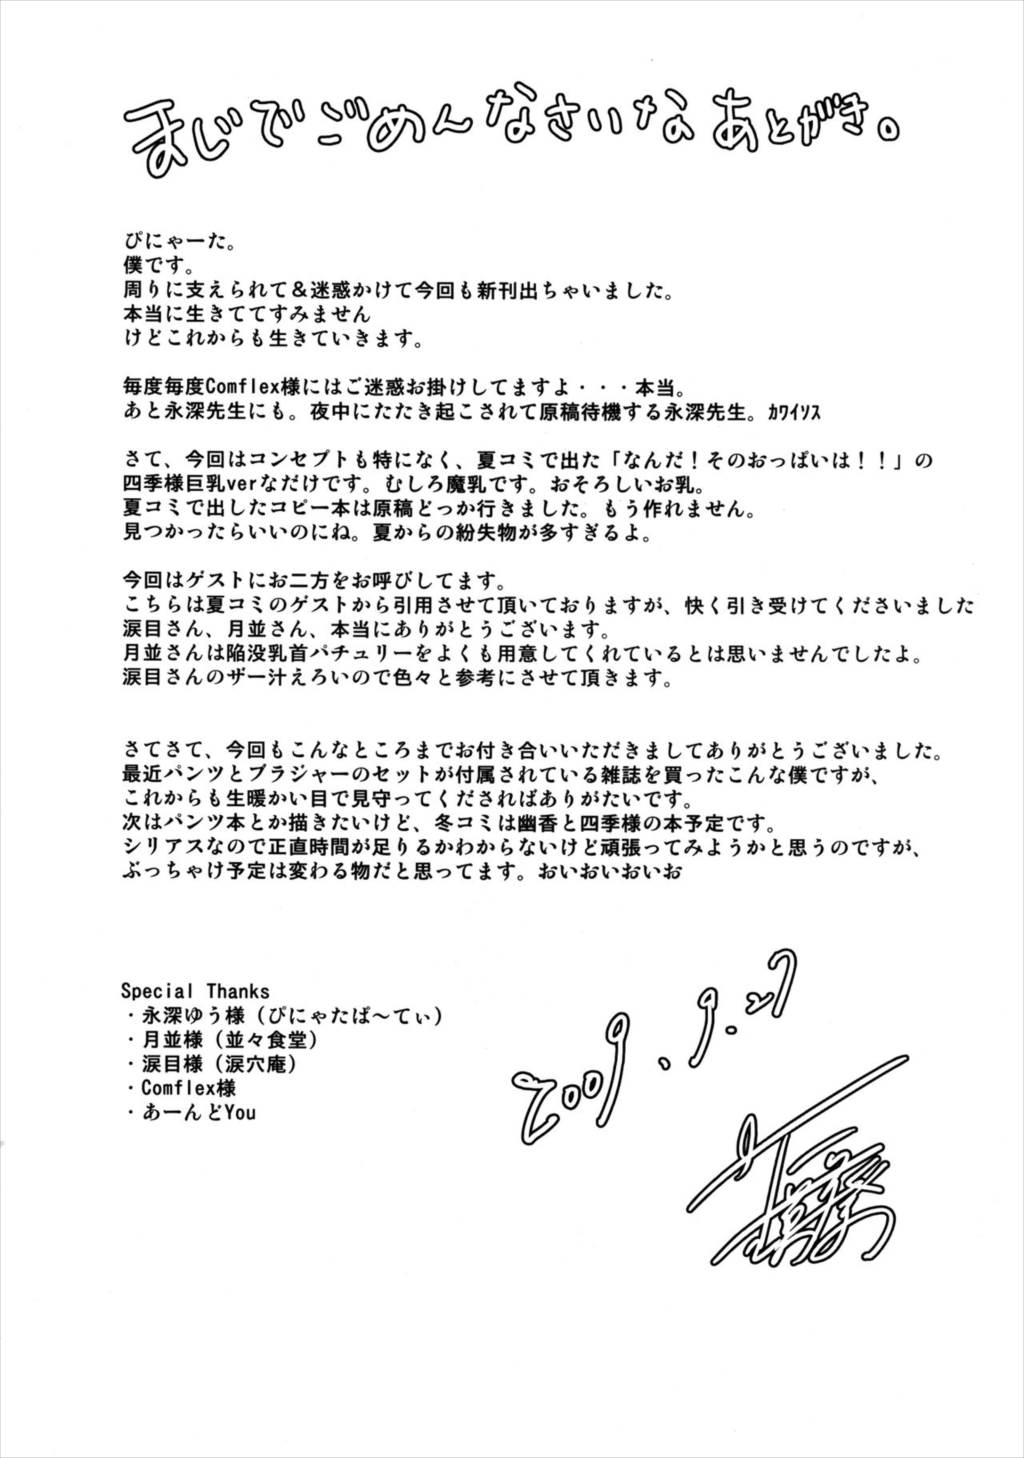 まじでごめんなさいなあとがき。
ぴにゃーた。
僕です。
周りに支えられて＆迷惑かけて今回も新刊出ちゃいました。
本当に生きててすみません
けどこれからも生きていきます。
毎度毎度Comflex様にはご迷惑お掛けしてますよ・・・本当。
あと永深先生にも。夜中にたたき起こされて原稿待機する永深先生。ｶﾜｲｿｽ
さて、今回はコンセプトも特になく、夏コミで出た「なんだ！そのおっぱいは！！」の
四季様巨乳verなだけです。むしろ魔乳です。おそろしいお乳。
夏コミで出したコピー本は原稿どっか行きました。もう作れません。
見つかったらいいのにね。夏からの紛失物が多すぎるよ。
今回はゲストにお二方をお呼びしてます。
こちらは夏コミのゲストから引用させて頂いておりますが、快く引き受けてくださいました
涙目さん、月並さん、本当にありがとうございます。
月並さんは陥没乳首パチュリーをよくも用意してくれているとは思いませんでしたよ。
涙目さんのザー汁えろいので色々と参考にさせて頂きます。
さてさて、今回もこんなところまでお付き合いいただきましてありがとうございました。
最近パンツとブラジャーのセットが付属されている雑誌を買ったこんな僕ですが、
これからも生暖かい目で見守ってくださればありがたいです。
次はパンツ本とか描きたいけど、冬コミは幽香と四季様の本予定です。
シリアスなので正直時間が足りるかわからないけど頑張ってみようかと思うのですが、
ぶっちゃけ予定は変わる物だと思ってます。おいおいおいお
Special Thanks
・永深ゆう様（ぴにゃたば～てぃ）
・月並様（並々食堂）
・涙目様（涙穴庵）
・Comflex様
・あーんどYou
2009.9.27